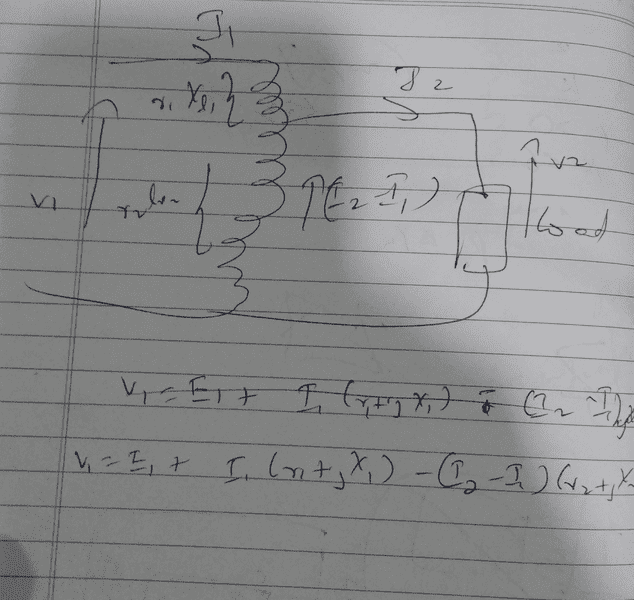 I₁
I₂
r₁ Xl₁
V₁
r₂
(I₂-I₁)
V₂
Load
V₁ = E₁ + I₁ (r₁+j X₁) - (I₂ - I₁)
V₁ = E₁ + I₁ (r₁+j X₁) - (I₂ - I₁) (r₂+j X₂